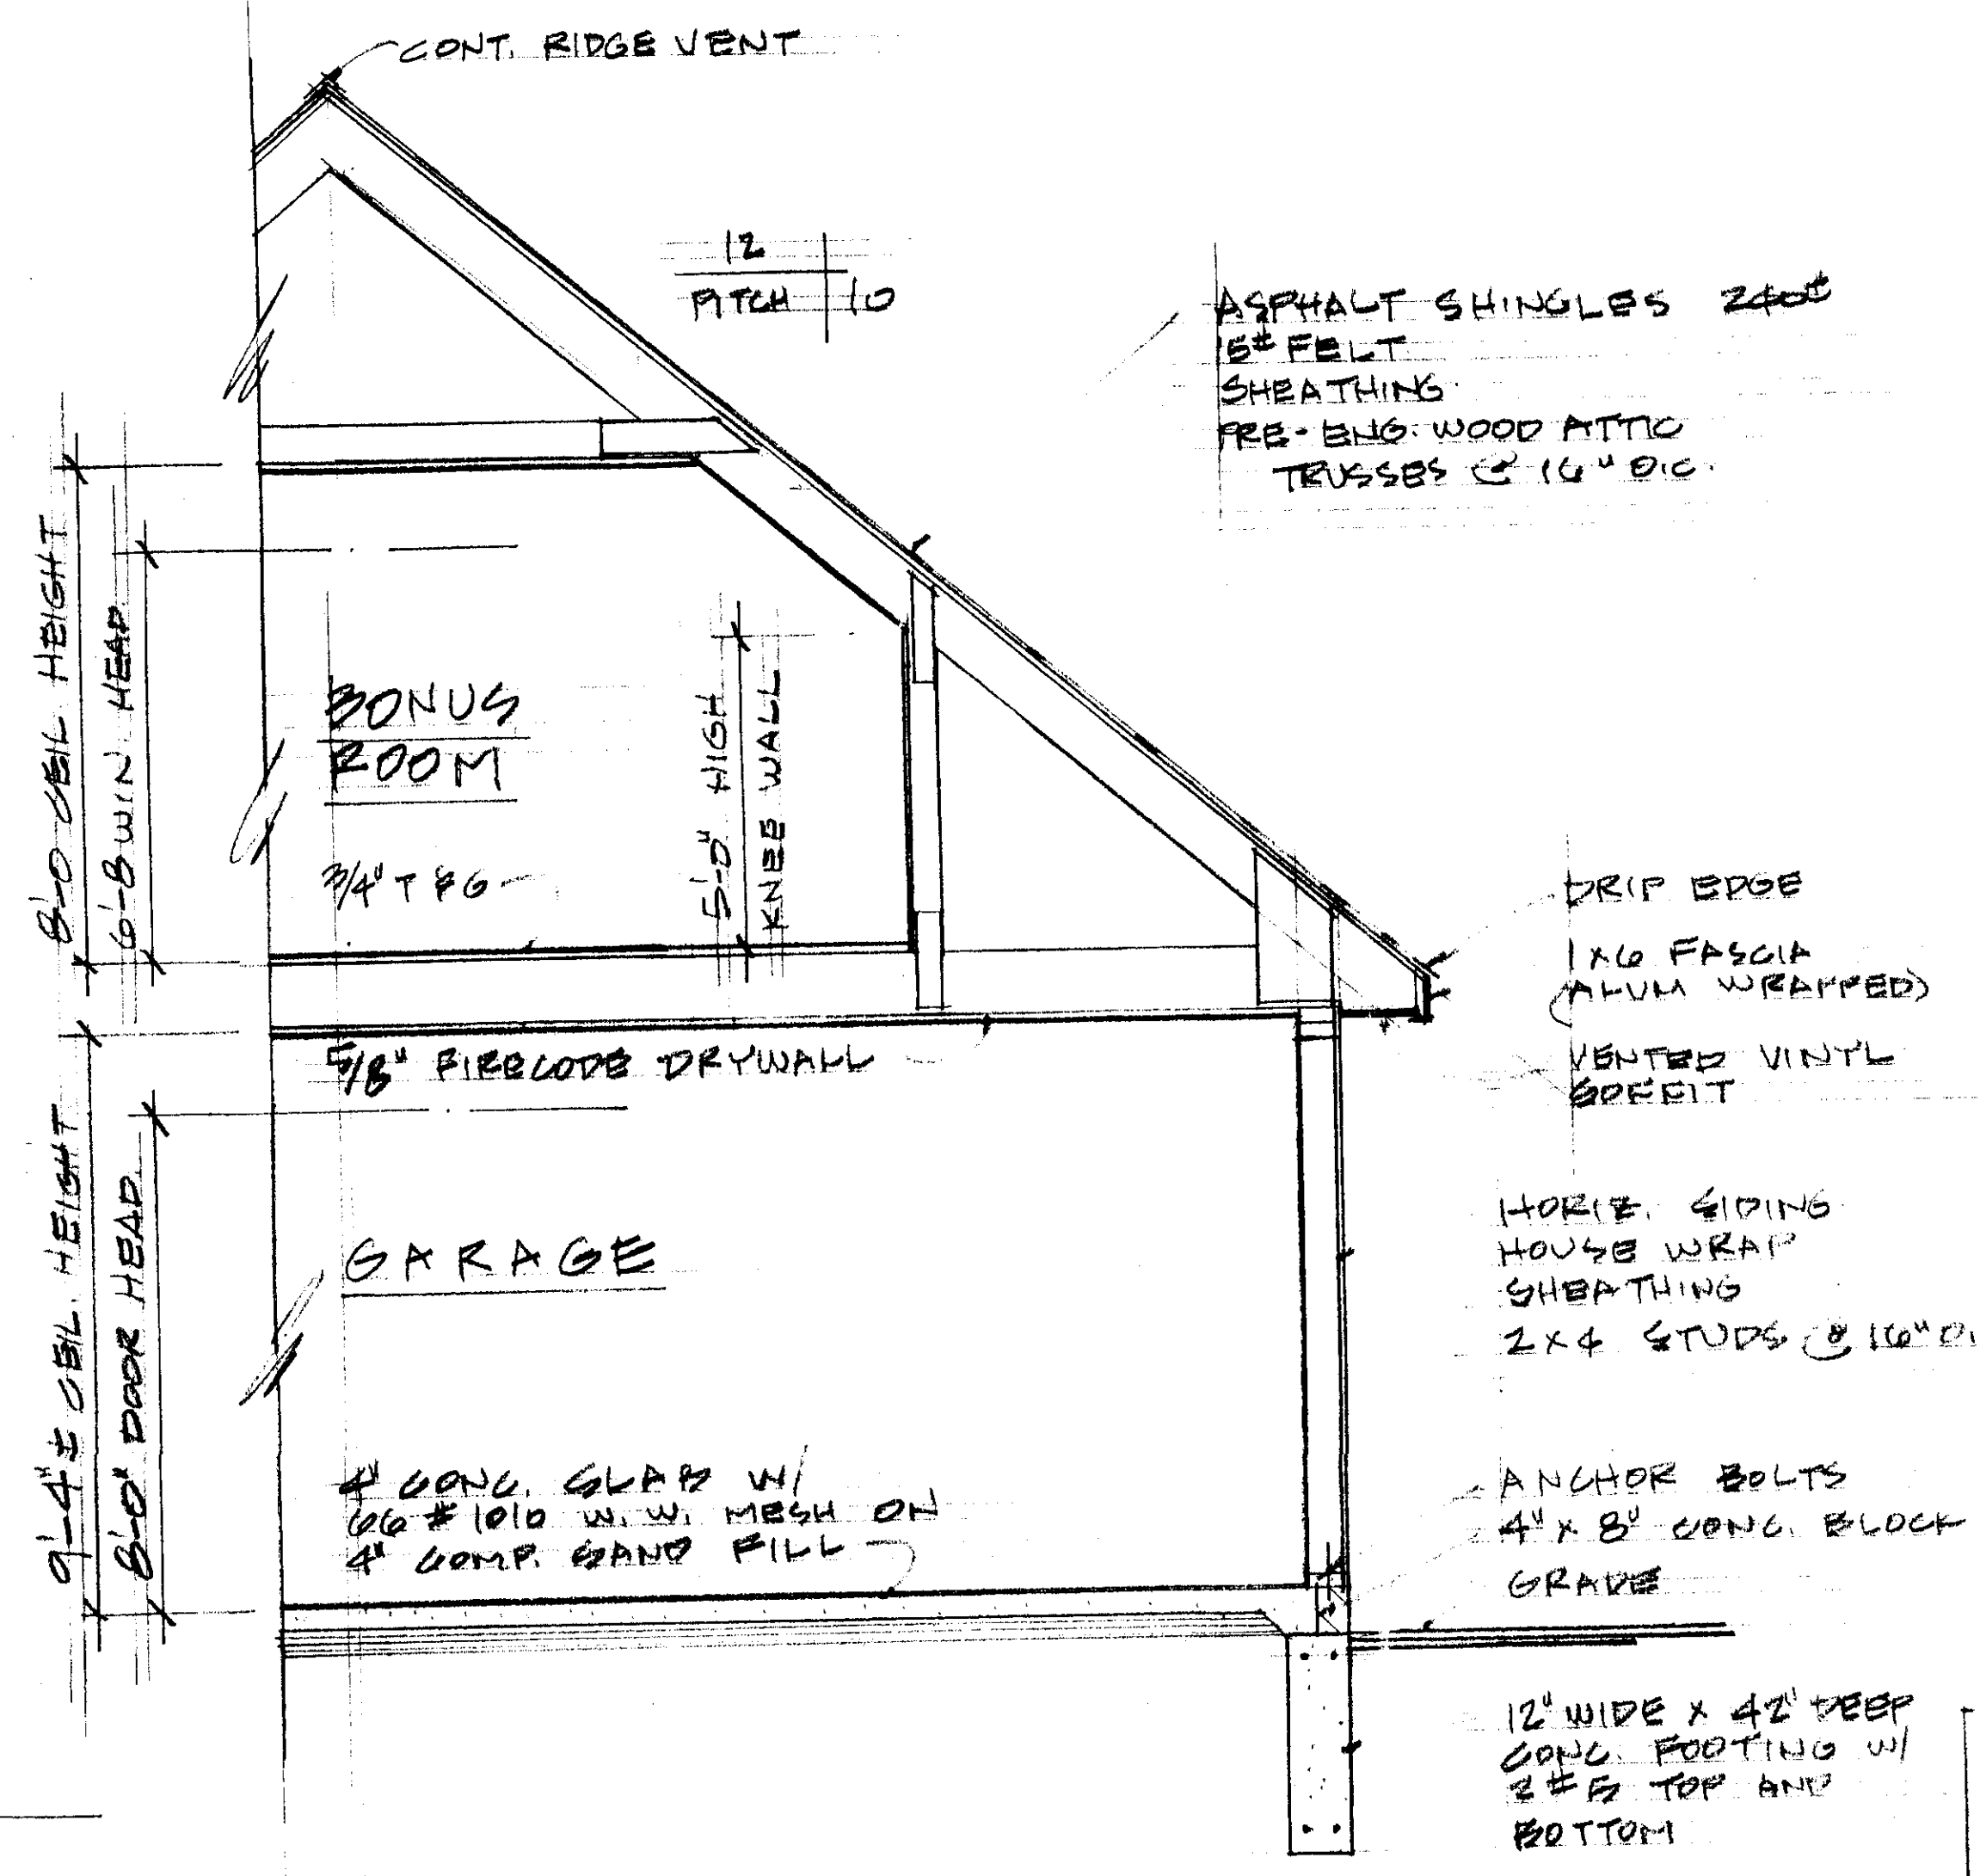 CONT. RIDGE VENT
12
PITCH 10
ASPHALT SHINGLES 240#
15# FELT
SHEATHING
PRE-ENG. WOOD ATTIC
TRUSSES @ 16" O.C.
8'-0 CEIL HEIGHT
6'-8 WIN. HEAD
BONUS
ROOM
3/4" T & G
5'-0" HIGH
KNEE WALL
DRIP EDGE
1x6 FASCIA
(ALUM WRAPPED)
VENTED VINYL
SOFFIT
5/8" FIRECODE DRYWALL
9'-4"± CEIL. HEIGHT
8'-0" DOOR HEAD
GARAGE
HORIZ. SIDING
HOUSE WRAP
SHEATHING
2x4 STUDS @ 16" O.
4" CONC. SLAB W/
66 # 1010 W. W. MESH ON
4" COMP. SAND FILL
ANCHOR BOLTS
4" x 8" CONC. BLOCK
GRADE
12" WIDE x 42" DEEP
CONC. FOOTING W/
2 # 5 TOP AND
BOTTOM